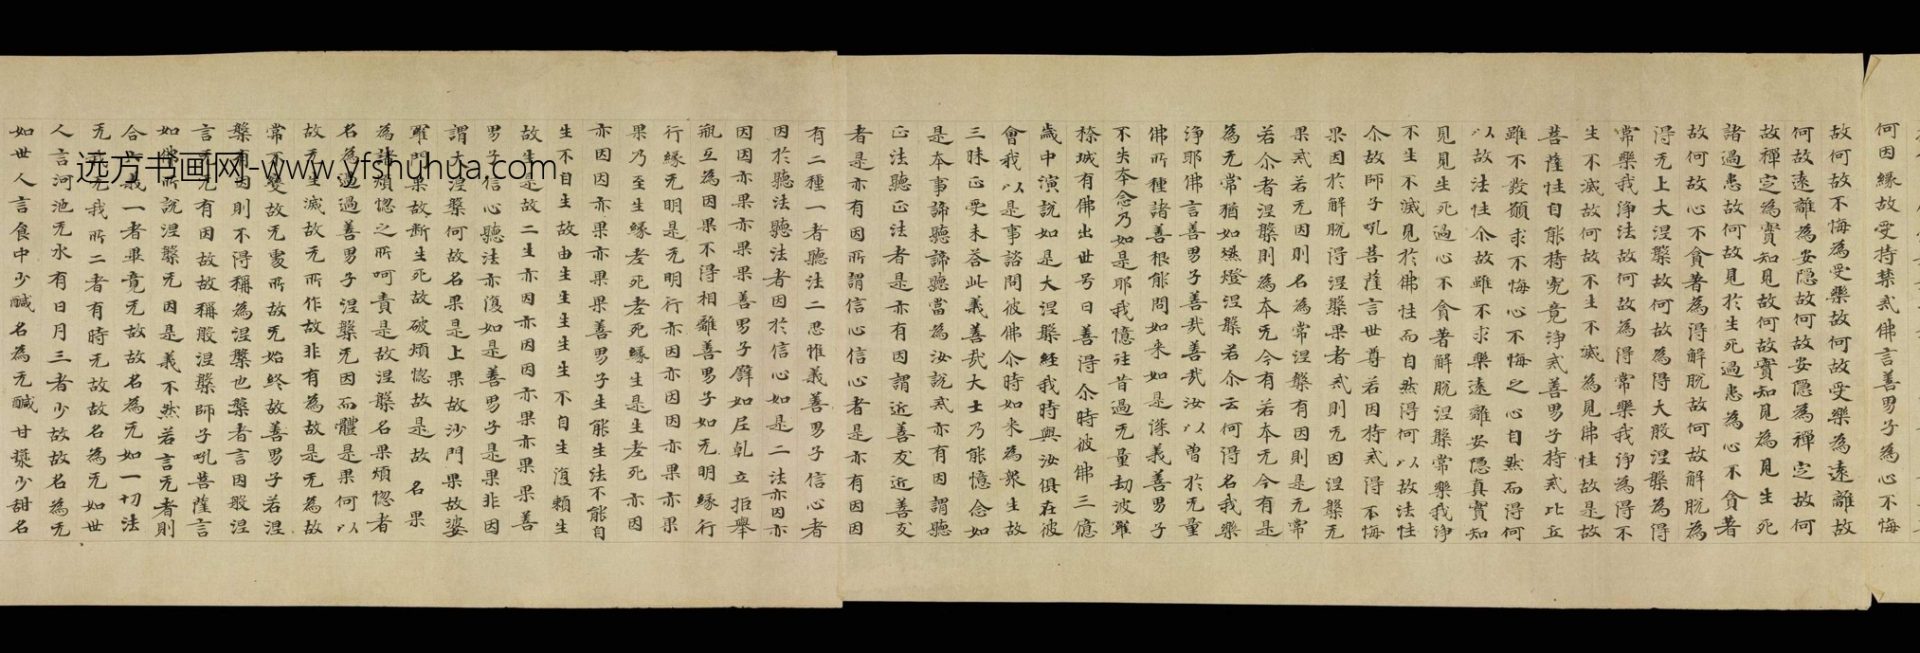 何因緣故受持禁戒佛言善男子為心不悔
故何故不悔為受樂故何故受樂為遠離故
何故遠離為安隱故何故安隱為禪定故何
故禪定為實知見故何故實知見為見生死
諸過患故何故見於生死過患為心不貪著
故何故心不貪著為得解脫故何故解脫為
得无上大涅槃故何故為得大般涅槃為得
常樂我淨法故何故為得常樂我淨為得不
生不滅故何故不生不滅為見佛性故是故
菩薩性自能持究竟淨戒善男子持戒比丘
雖不發願求不悔心不悔之心自然而得何
以故法性尒故雖不求樂遠離安隱真實知
見見生死過心不貪著解脫涅槃常樂我淨
不生不滅見於佛性而自然得何以故法性
尒故師子吼菩薩言世尊若因持戒得不悔
果因於解脫得涅槃果者戒則无因涅槃无
果戒若无因則名為常涅槃有因則是无常
若尒者涅槃則為本无今有若本无今有是
為无常猶如燃燈涅槃若尒云何得名我樂
淨耶佛言善男子善哉善哉汝以曾於无量
佛所種諸善根能問如來如是深義善男子
不失本念乃如是耶我憶往昔過无量劫波羅
㮈城有佛出世号曰善得尒時彼佛三億
歲中演說如是大涅槃經我時與汝俱在彼
會我以是事諮問彼佛尒時如來為眾生故
三昧正受未荅此義善哉大士乃能憶念如
是本事諦聽諦聽當為汝說戒亦有因謂聽
正法聽正法者是亦有因謂近善友近善友
者是亦有因所謂信心信心者是亦有因因
有二種一者聽法二思惟義善男子信心者
因於聽法聽法者因於信心如是二法亦因亦
因因亦果亦果果善男子譬如尼乹立拒舉
瓶互為因果不得相離善男子如无明緣行
行緣无明是无明行亦因亦因因亦果亦果
果乃至生緣老死老死緣生是生老死亦因
亦因因亦果亦果果善男子生能生法不能自
生不自生故由生生生生不自生復賴生
故生是故二生亦因亦因因亦果亦果果善
男子信心聽法亦復如是善男子是果非因
謂大涅槃何故名果是上果故沙門果故婆
羅門果故斷生死故破煩惱故是故名果
為諸煩惱之所呵責是故涅槃名果煩惱者
名為過過善男子涅槃无因而體是果何以
故无生滅故无所作故非有為故是无為故
常不變故无處所故无始終故善男子若涅
槃有因則不得稱為涅槃也槃者言因般涅
言无无有因故故稱般涅槃師子吼菩薩言
如佛所說涅槃无因是義不然若言无者則
合六義一者畢竟无故故名為无如一切法
无我无我所二者有時无故故名為无如世
人言河池无水有日月三者少故故名為无
如世人言食中少鹹名為无鹹甘漿少甜名
远方书画网-www.yfshuhua.com